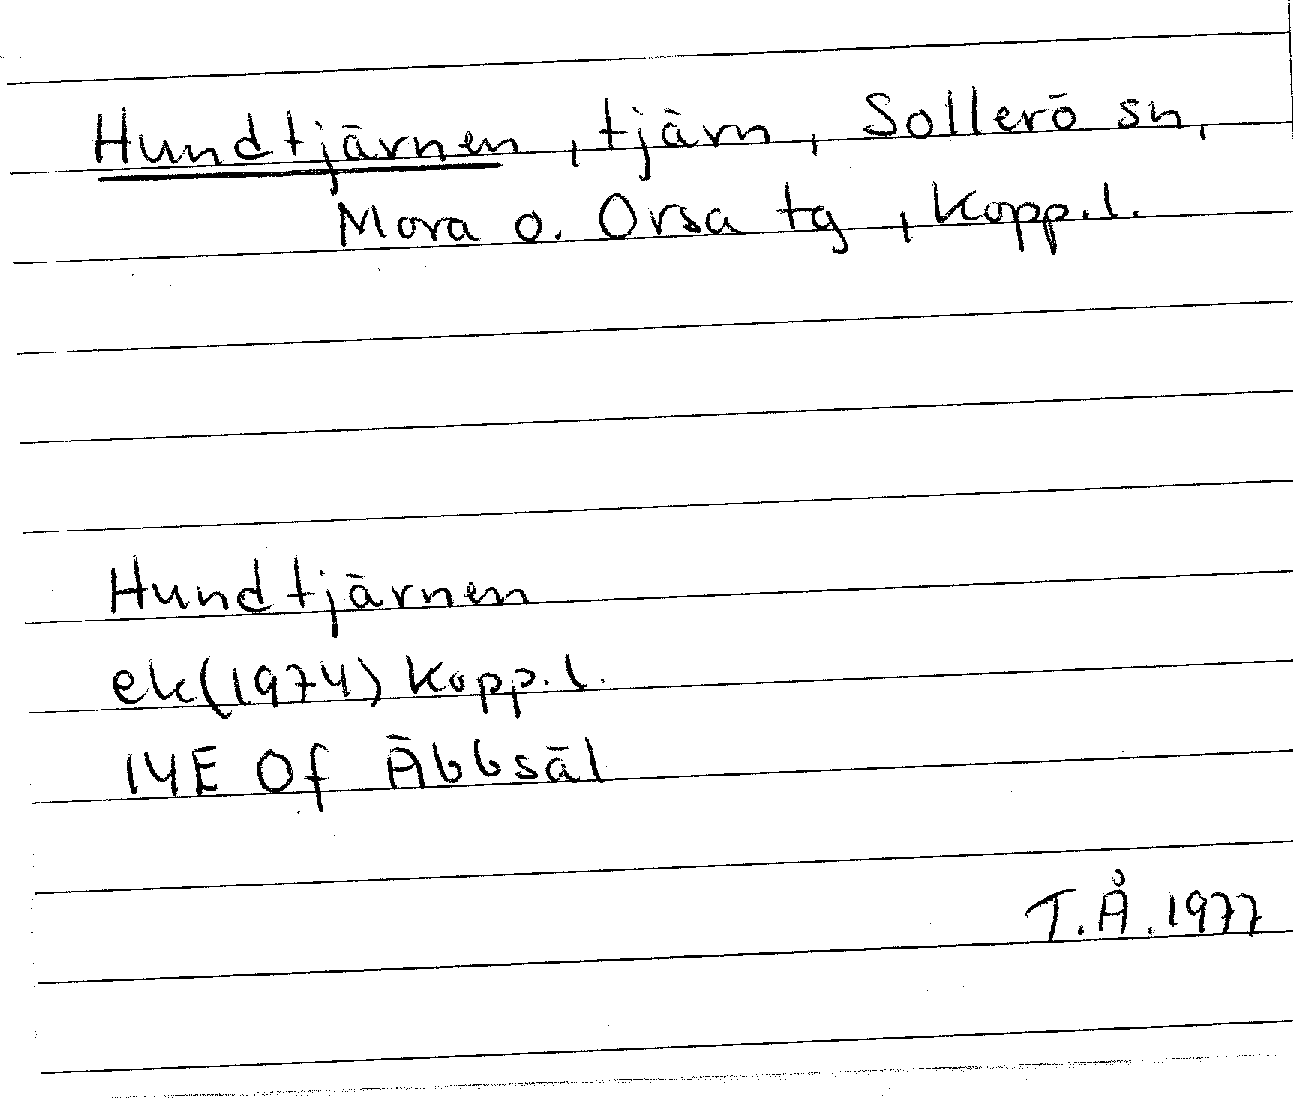 Hundtjärnen, tjärn, Sollerö sn,
Mora o. Orsa tg, Kopp.l.
Hundtjärnen
ek(1974) Kopp.l.
14E 0f Äbbsäl
T.Å. 1977